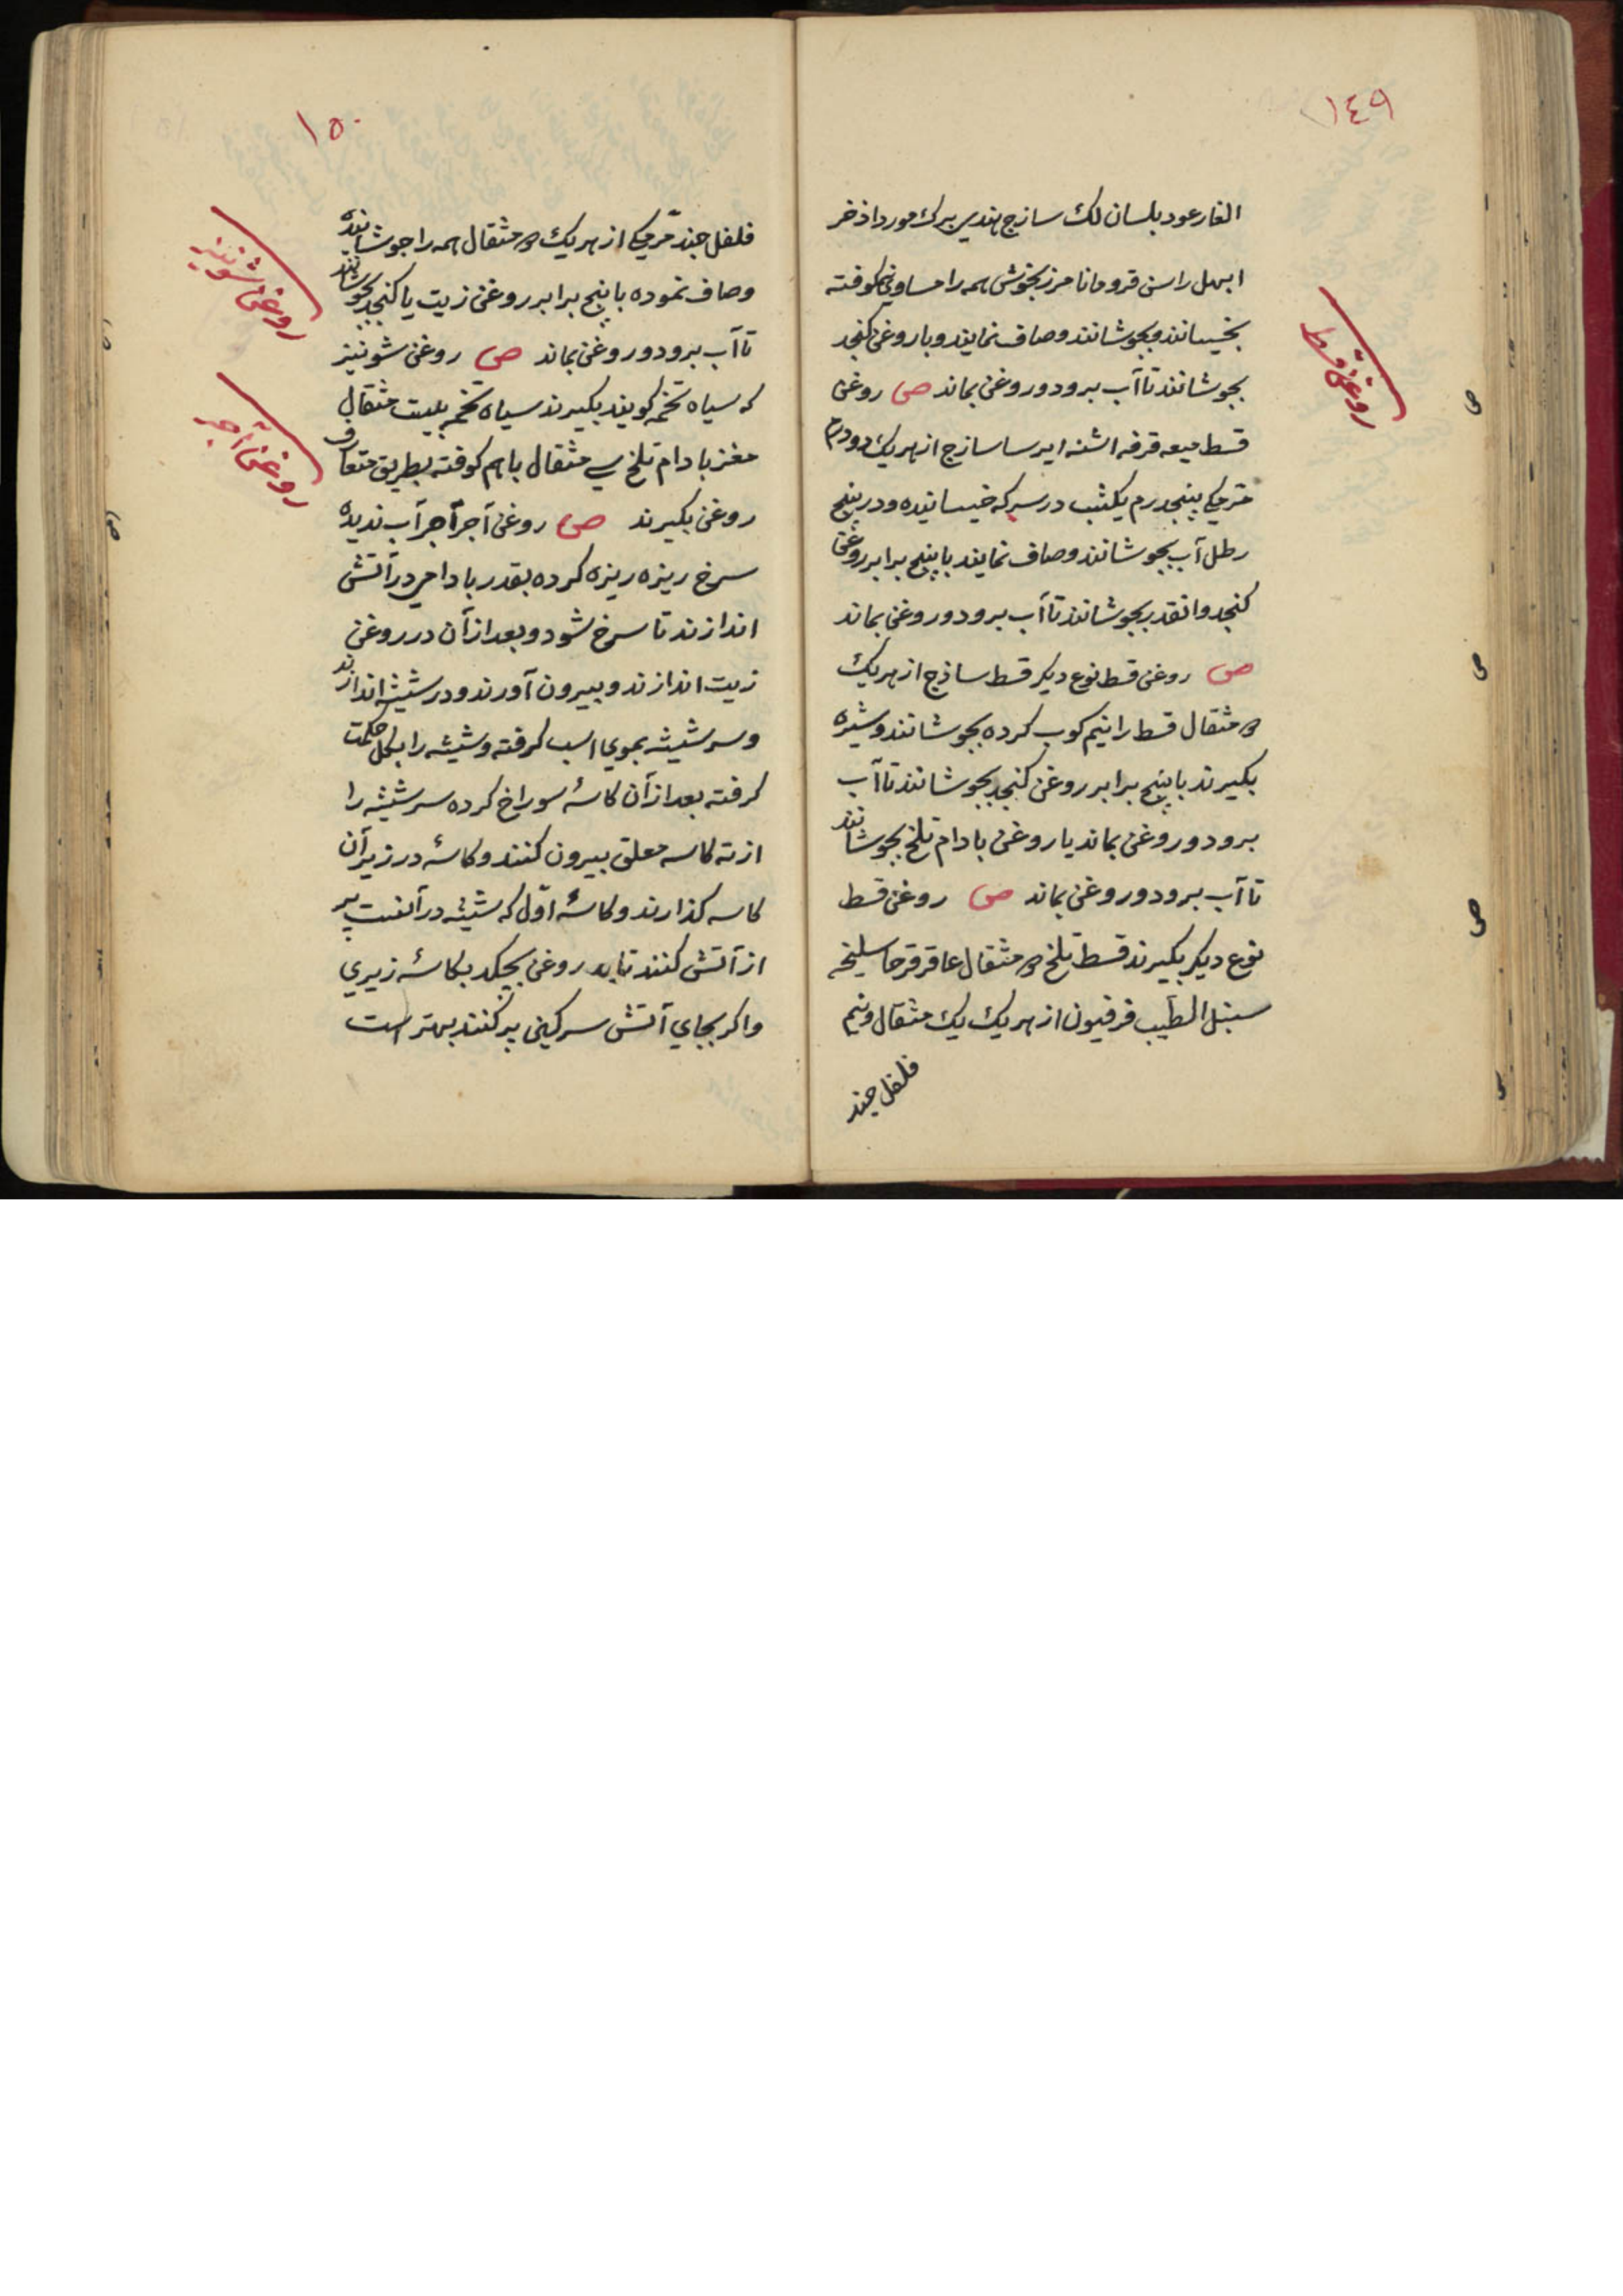 ١٤٩
الغار عود بلسان لك سازج هندی برك مورد اذخر
ابهل راسن قردمانا مرزنجوش همه را مساوی کوفته
بخیسانند و بجوشانند و صاف نمایند و با روغن کنجد
بجوشانند تا آب برود و روغن بماند ص روغن
روغن قسط
قسط میعه قرفه اشنه ایرسا سازج از هریك دودرم
مرمکی پنجدرم یکشب در سرکه خیسانیده و در پنج
رطل آب بجوشانند و صاف نمایند با پنج برابر روغن
کنجد وانقدر بجوشانند تا آب برود و روغن بماند
ص روغن قسط نوع دیکر قسط ساذج از هریك
مثقال قسط را نیم کوب کرده بجوشانند و شیره
بکیرند با پنج برابر روغن کنجد بجوشانند تا آب
برود و روغن بماند یا روغن بادام تلخ بجوشانند
تا آب برود و روغن بماند ص روغن قسط
نوع دیکر بکیرند قسط تلخ مثقال عاقرقرحا سلیخه
سنبل الطیب فرفیون از هریك یك مثقال و نیم
فلفل جند
١٥٠
فلفل جند مرمکی از هریك مثقال همه را جوشانیده
و صاف نموده با پنج برابر روغن زیت یا کنجد بجوشانند
تا آب برود و روغن بماند ص روغن شونیز
روغن شونیز
که سیاه تخمه کویند بکیرند سیاه تخمه بیست مثقال
مغز بادام تلخ سی مثقال باهم کوفته بطریق متعارف
روغن بکیرند ص روغن آجر آجر آب ندیده
روغن آجر
سرخ ریزه ریزه کرده بقدر بادامی در آتش
اندازند تا سرخ شود و بعد از آن در روغن
زیت اندازند و بیرون آورند و در شیشه اندازند
و سر شیشه بموی اسب کرفته و شیشه را بکل حکمت
کرفته بعد از آن کاسهٔ سوراخ کرده سر شیشه را
از ته کاسه معلق بیرون کنند و کاسهٔ در زیر آن
کاسه کذارند و کاسهٔ اوّل که شیشه در آنست پر
از آتش کنند تا روغن بچکد بکاسهٔ زیری
و اکر بجای آتش سرکین پر کنند بهتر است